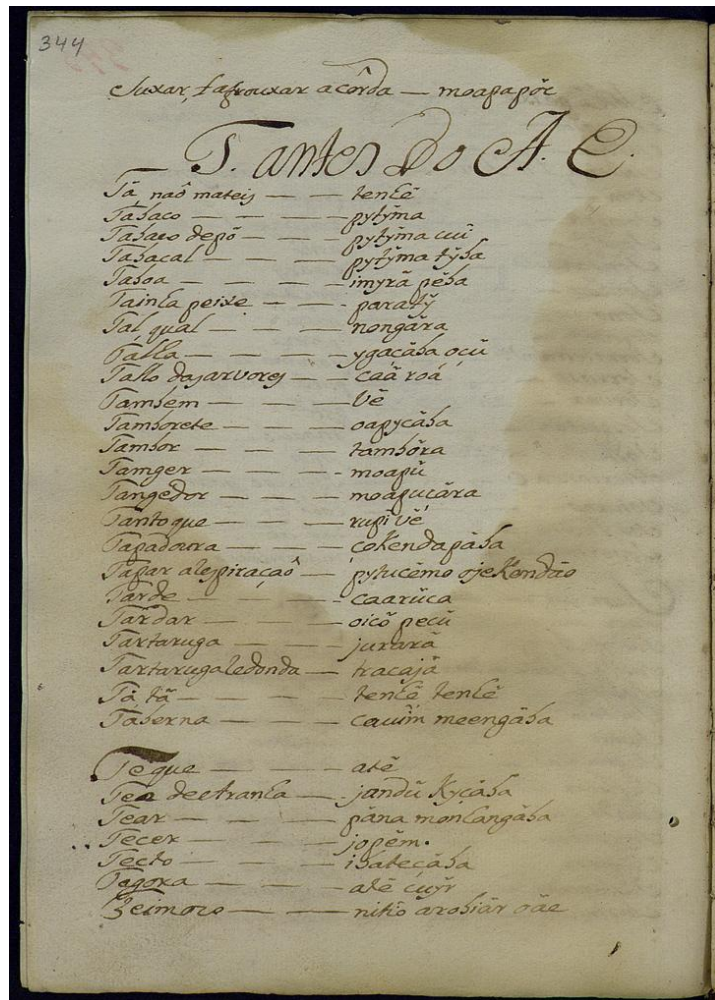 344
Suxar, l afrouxar a côrda — moapapöc
T. antes do A. E.
Tá naô mateis — — tenhẽ
Tabaco — — — — pytỹma
Tabaco depô — — — pytỹma cuĩ
Tabacal — — — — pytỹma tỹba
Taboa — — — — imyrã pẽba
Tainha peixe — — — paratỹ
Tal qual — — — — nongãra
Talha — — — — ygaçãba oçũ
Tallo das arvores — — caã roá
Tambem — — — — Vẽ
Tamborete — — — oapycãba
Tambor — — — — tambõra
Tamger — — — — moapũ
Tangedor — — — — moapuçãra
Tanto que — — — rupĩ vẽ
Tapadoura — — — çokendapãba
Tapar a respiraçaô — pytucẽmo ojekendão
Tarde — — — — caarũca
Tardar — — — — oicõ pecũ
Tartaruga — — — jurarã
Tartaruga redonda — tracajã
Tá tã — — — — tenhẽ tenhẽ
Taberna — — — — cauĩm meengãba
Te que — — — — atẽ
Tea de aranha — jandũ kyçãba
Tear — — — — pãna monhangãba
Tecer — — — — jopẽm.
Tecto — — — —
Tegora — — — — atẽ cuỹr
Teimozo — — — nitĩo arobiãr oãe